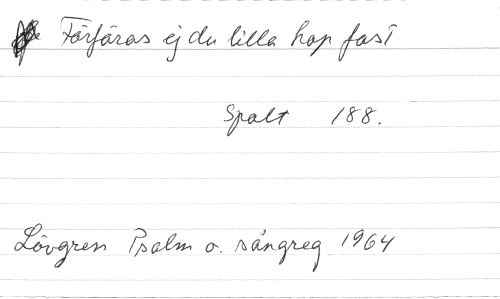 Förfäras ej du lilla hop fast
Spalt 188.
Lövgren Psalm o. sångreg 1964